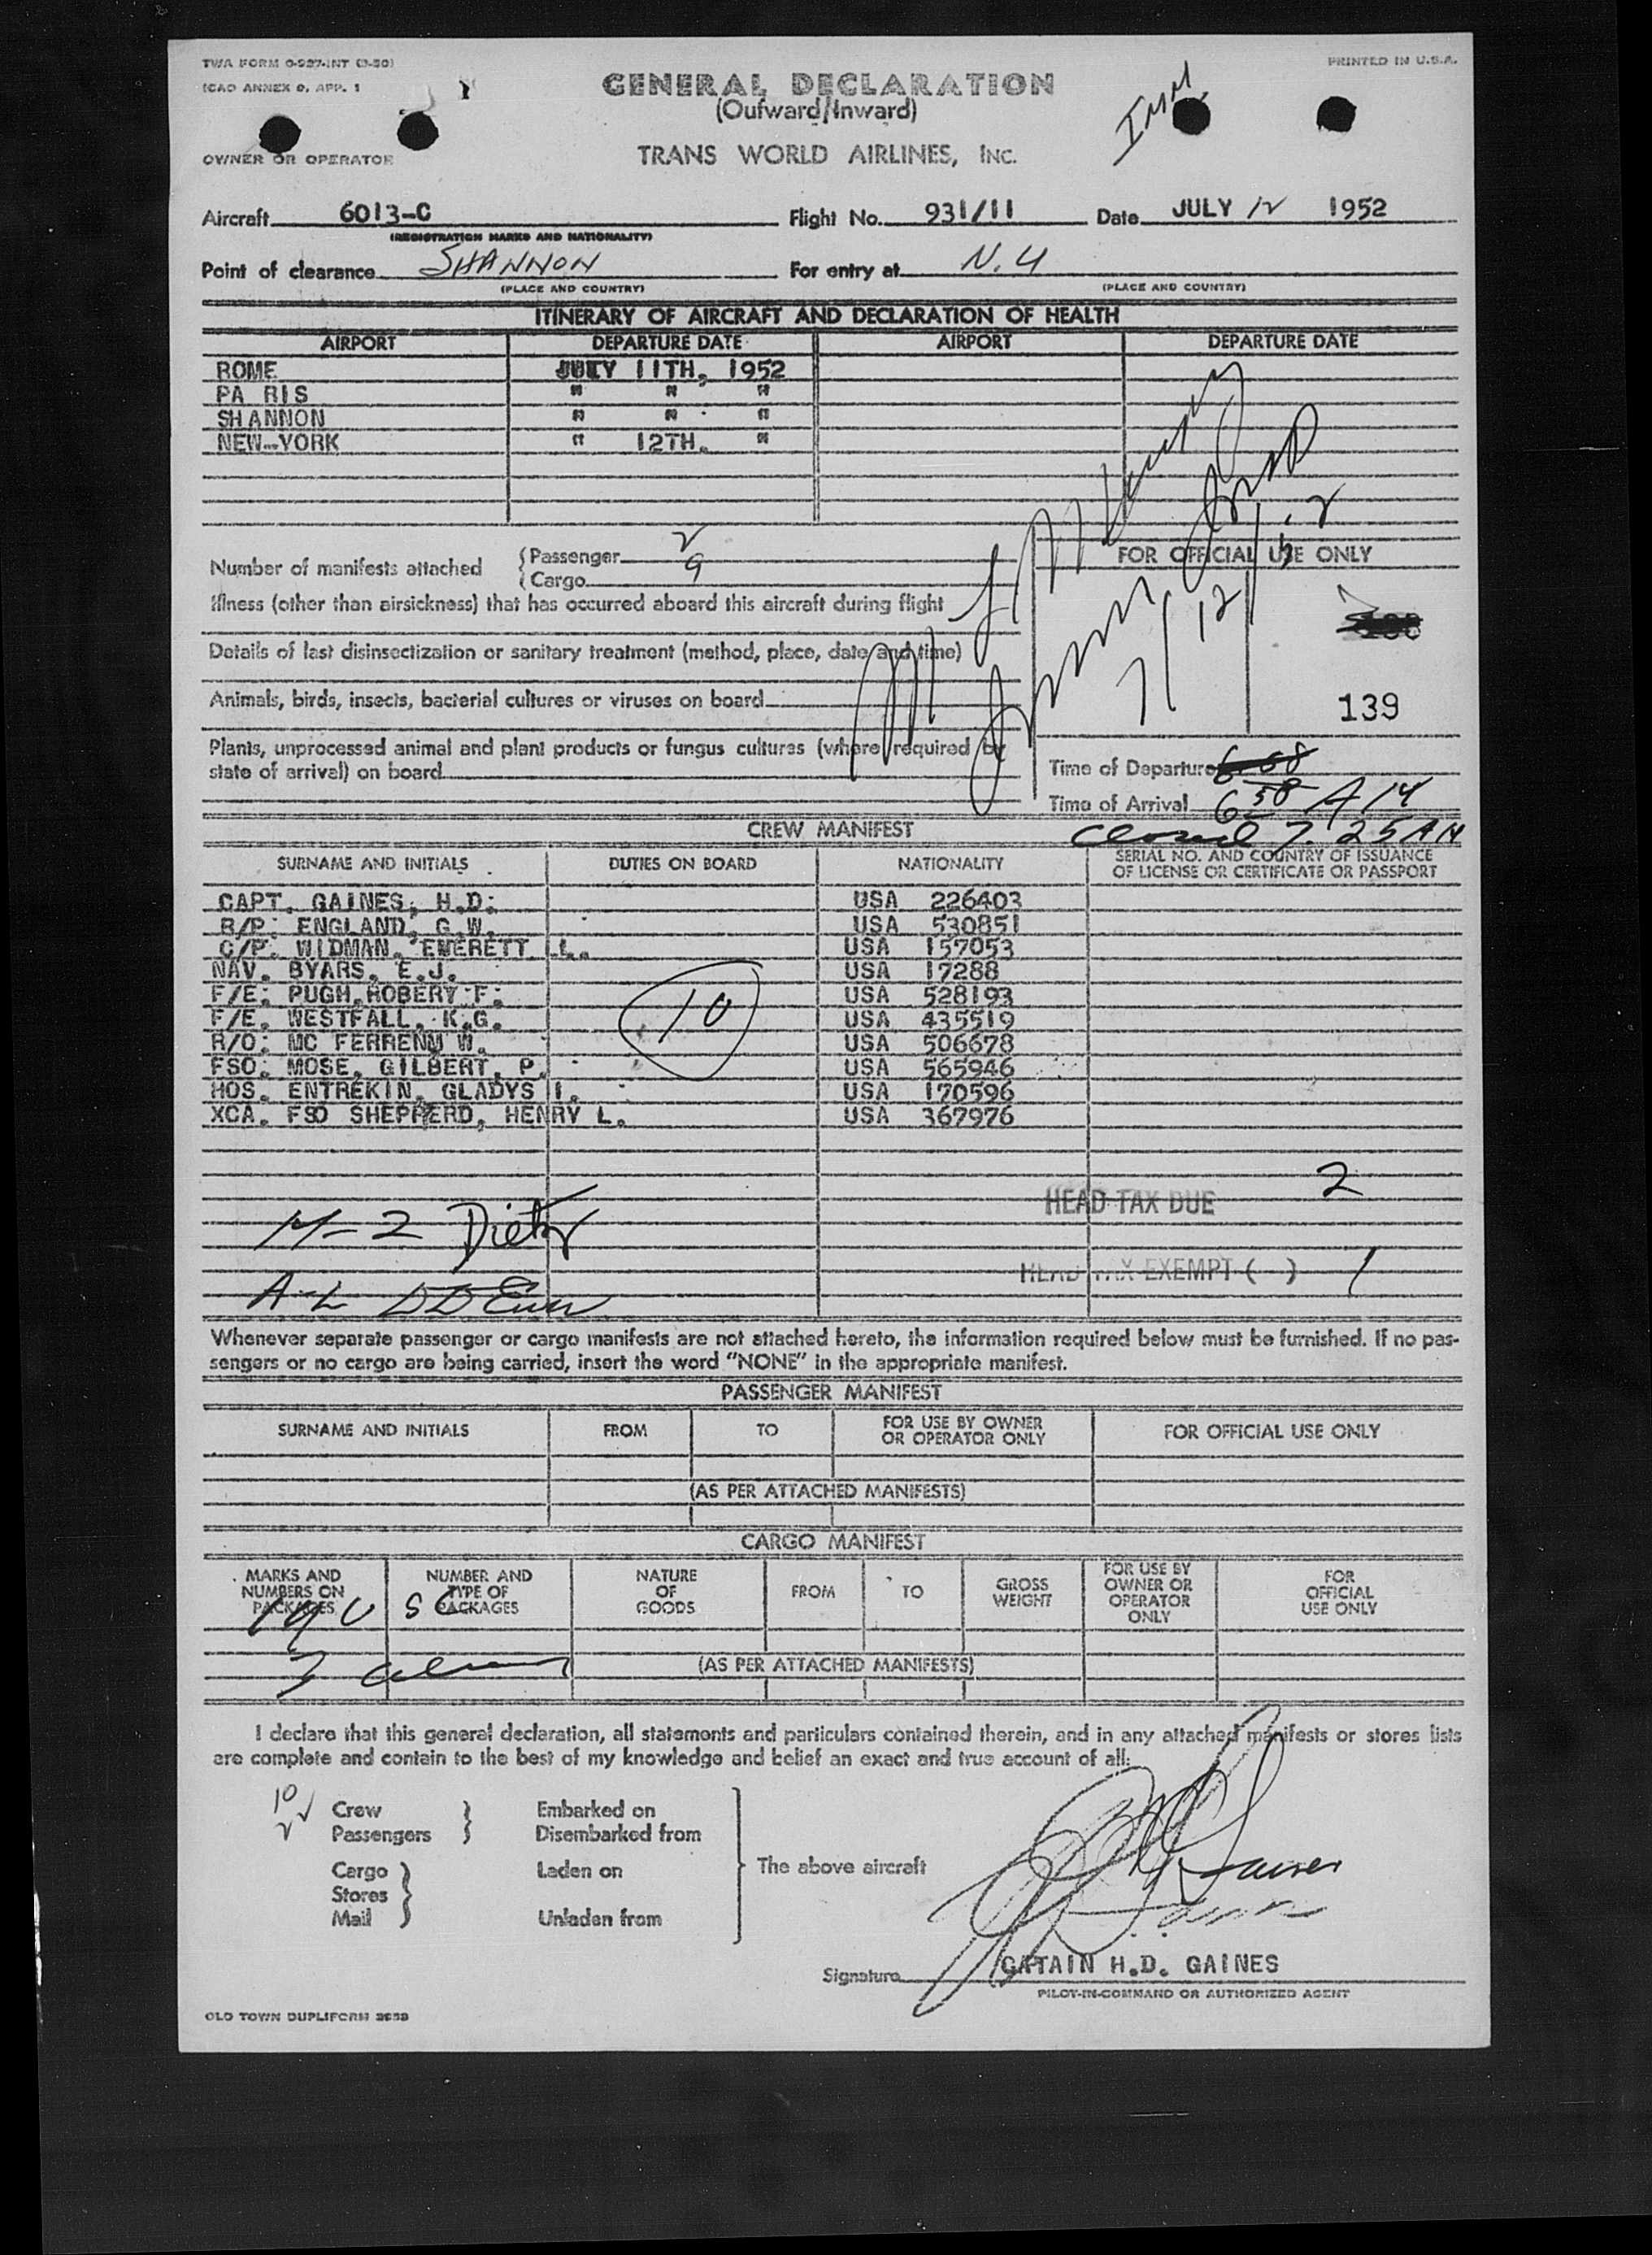 TWA FORM O-997-INT (3-50)
PRINTED IN U.S.A.
ICAO ANNEX 9, APP. 1
GENERAL DECLARATION
(Outward/Inward)
OWNER OR OPERATOR
TRANS WORLD AIRLINES, INC.
Aircraft 6013-C Flight No. 931/11 Date JULY 12 1952
(REGISTRATION MARKS AND NATIONALITY)
Point of clearance SHANNON For entry at N.Y
(PLACE AND COUNTRY) (PLACE AND COUNTRY)
ITINERARY OF AIRCRAFT AND DECLARATION OF HEALTH
AIRPORT DEPARTURE DATE AIRPORT DEPARTURE DATE
ROME JULY 11TH, 1952
PA RIS " " "
SHANNON " " "
NEW-YORK " 12TH. "
Number of manifests attached
Passenger 2
Cargo 9
FOR OFFICIAL USE ONLY
Illness (other than airsickness) that has occurred aboard this aircraft during flight
7/12/
Details of last disinsectization or sanitary treatment (method, place, date and time)
Animals, birds, insects, bacterial cultures or viruses on board
139
Plants, unprocessed animal and plant products or fungus cultures (where required by
state of arrival) on board
Time of Departure 6 58
Time of Arrival 6 58 A M
CREW MANIFEST
Closed 7.25 AM
SURNAME AND INITIALS DUTIES ON BOARD NATIONALITY SERIAL NO. AND COUNTRY OF ISSUANCE
OF LICENSE OR CERTIFICATE OR PASSPORT
CAPT. GAINES, H.D. USA 226403
R/P: ENGLAND, G.W. USA 530851
C/P. WIDMAN, EVERETT L. USA 157053
NAV. BYARS, E.J. USA 17288
F/E: PUGH, ROBERT F. USA 528193
F/E. WESTFALL, K.G. USA 435519
10
R/O: MC FERRENM W. USA 506678
FSO: MOSE, GILBERT, P. USA 565946
HOS. ENTREKIN, GLADYS I. USA 170596
XCA. FSO SHEPHERD, HENRY L. USA 367976
HEAD TAX DUE 2
M-2 Dietz
HEAD TAX EXEMPT ( ) 1
Whenever separate passenger or cargo manifests are not attached hereto, the information required below must be furnished. If no pas-
sengers or no cargo are being carried, insert the word "NONE" in the appropriate manifest.
PASSENGER MANIFEST
SURNAME AND INITIALS FROM TO FOR USE BY OWNER OR OPERATOR ONLY FOR OFFICIAL USE ONLY
(AS PER ATTACHED MANIFESTS)
CARGO MANIFEST
MARKS AND NUMBERS ON PACKAGES NUMBER AND TYPE OF PACKAGES NATURE OF GOODS FROM TO GROSS WEIGHT FOR USE BY OWNER OR OPERATOR ONLY FOR OFFICIAL USE ONLY
(AS PER ATTACHED MANIFESTS)
I declare that this general declaration, all statements and particulars contained therein, and in any attached manifests or stores lists
are complete and contain to the best of my knowledge and belief an exact and true account of all:
10 Crew Embarked on
2 Passengers Disembarked from
Cargo Laden on The above aircraft
Stores
Mail Unladen from
Signature CATAIN H.D. GAINES
PILOT-IN-COMMAND OR AUTHORIZED AGENT
OLD TOWN DUPLIFORM